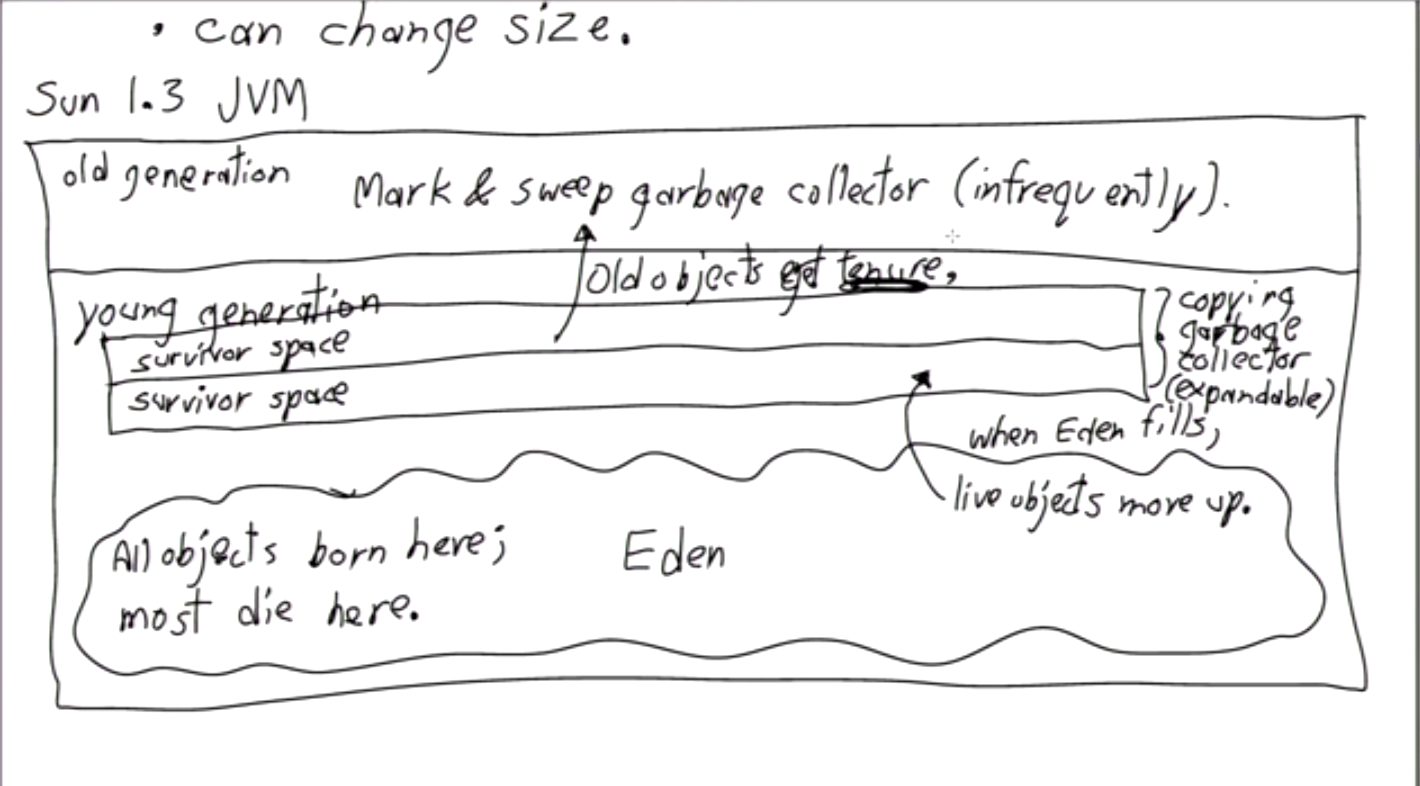 • can change size.
Sun 1.3 JVM
old generation
Mark & sweep garbage collector (infrequently).
Old objects get tenure.
young generation
survivor space
survivor space
copying
garbage
collector
(expandable)
when Eden fills,
live objects move up.
All objects born here;
most die here.
Eden